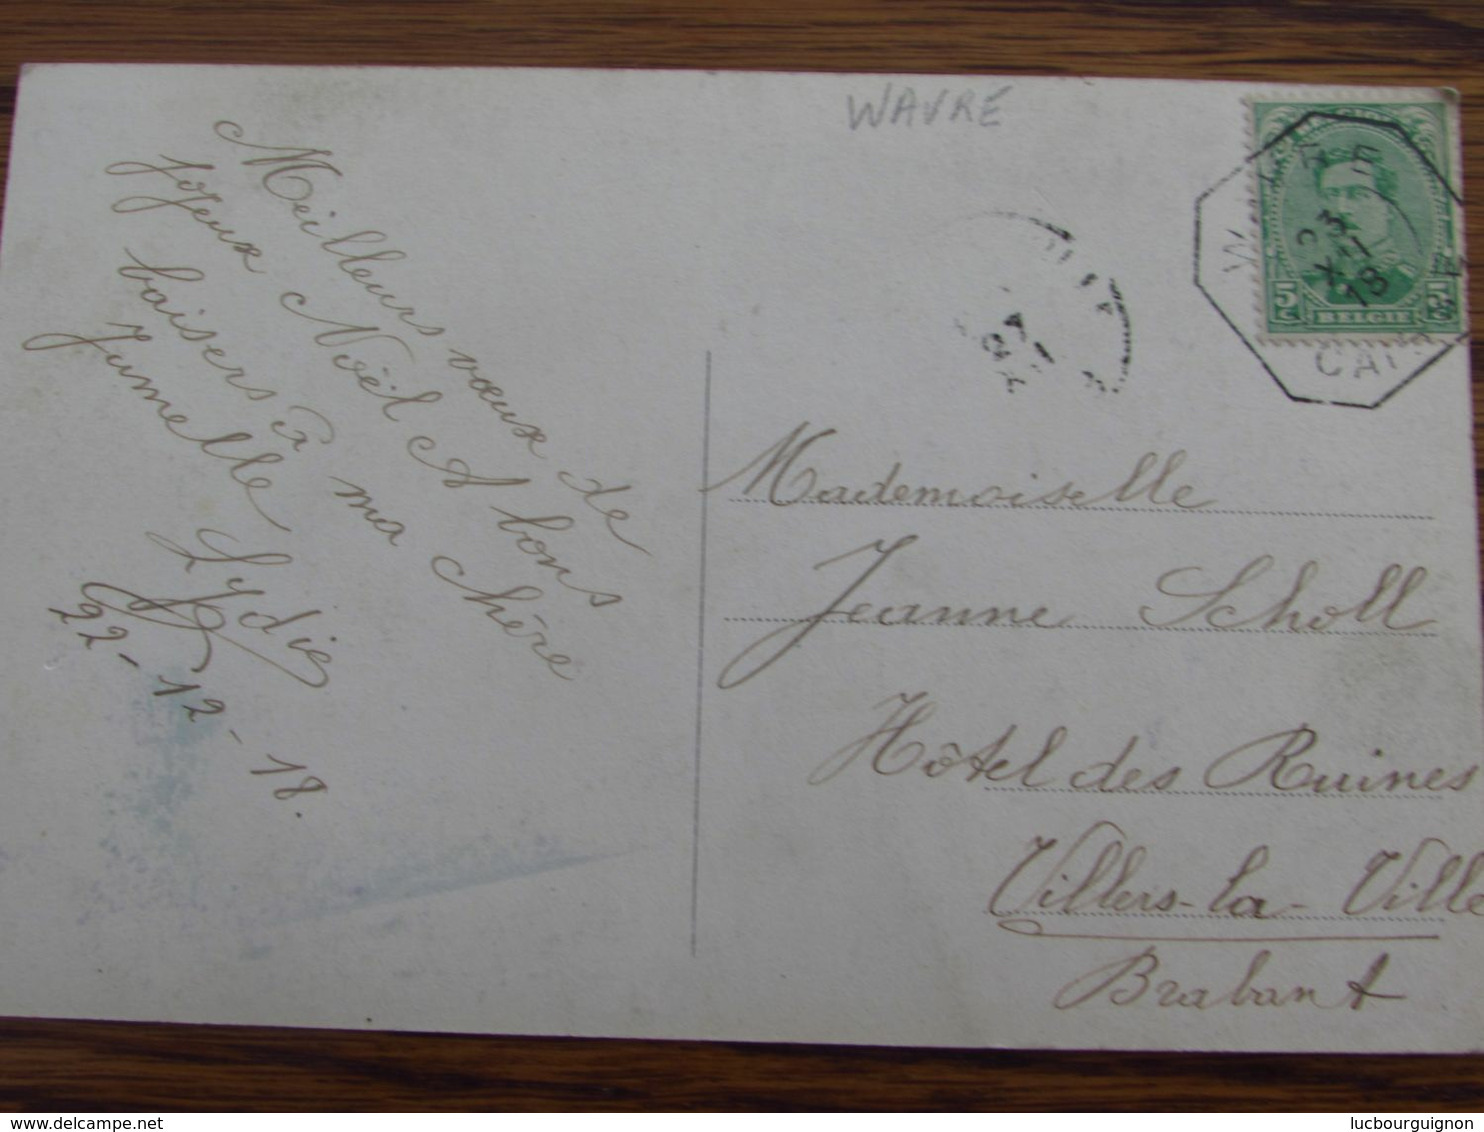 WAVRE
Meilleurs vœux de
joyeux Noël et bons
baisers à ma chère
Jumelle
Lydie
22-12-18.
5c
BELGIE
23
XII
18
Mademoiselle
Jeanne Scholl
Hôtel des Ruines
Villers-la-Ville
Brabant
delcampe.net
lucbourguignon